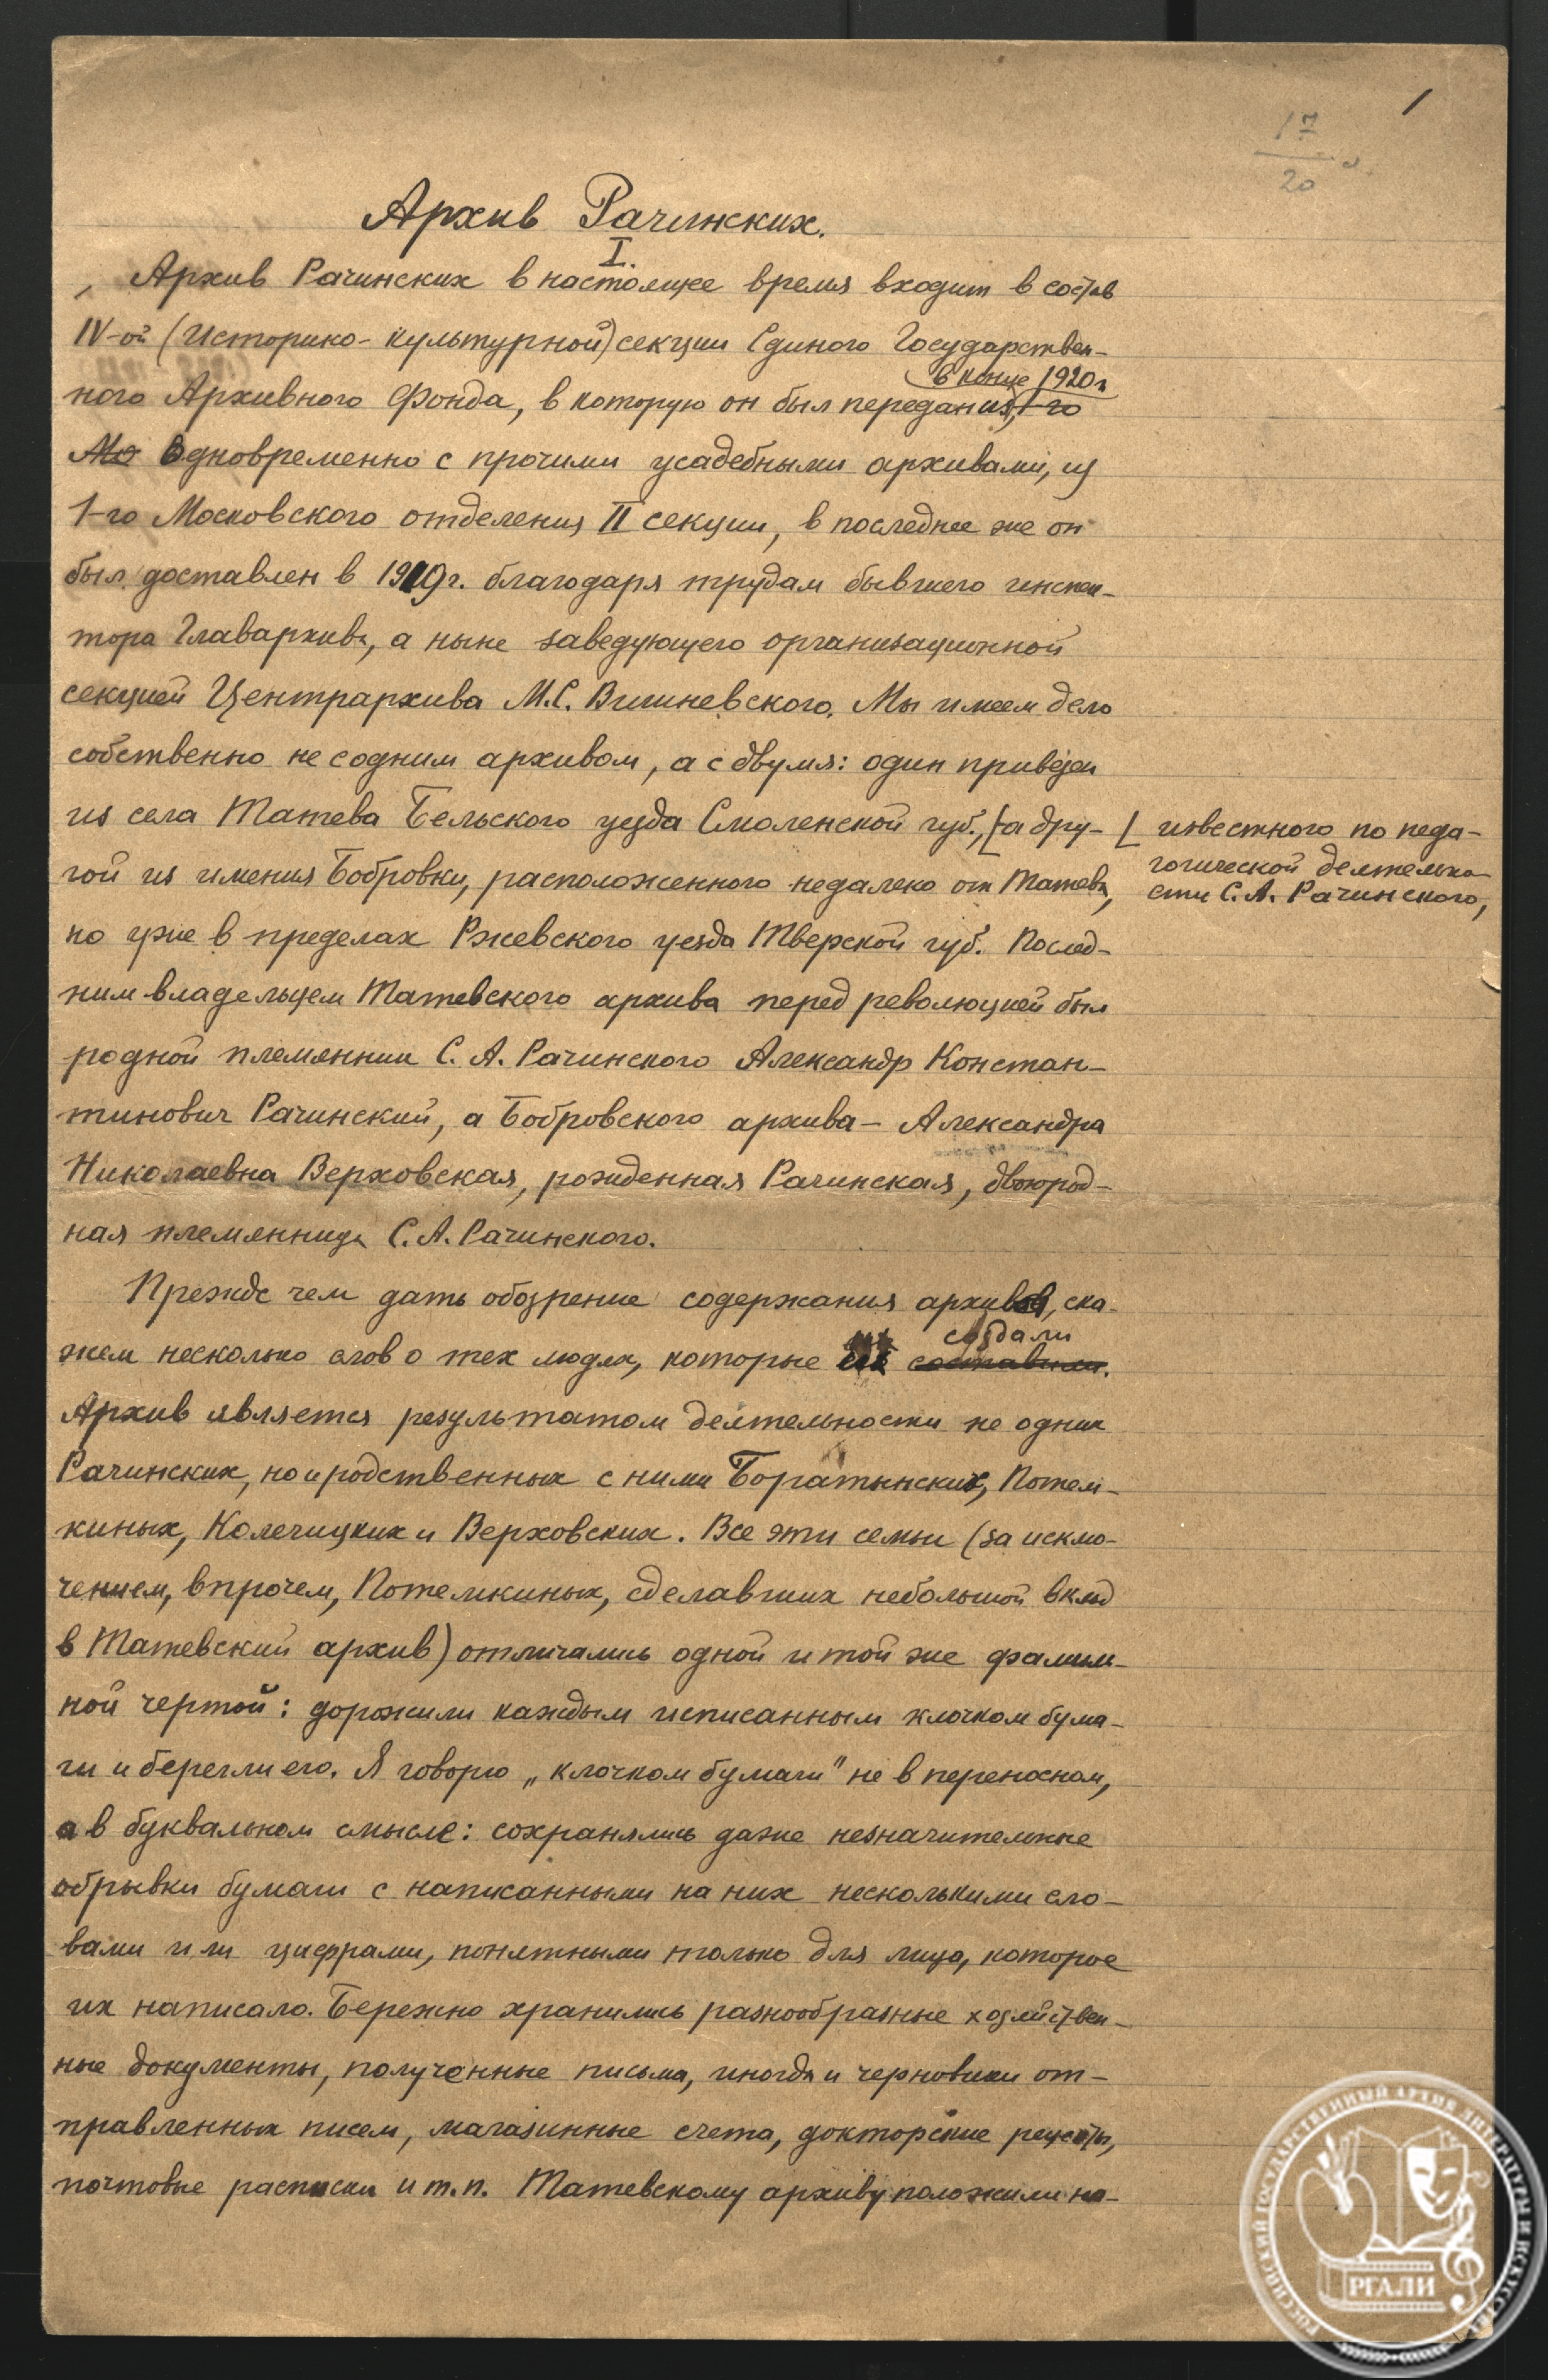 1
17
20
Архив Рачинских.
I.
Архив Рачинских в настоящее время входит в состав
IV-ой (Историко-культурной) секции Единого Государствен-
в конце 1920 г
ного Архивного Фонда, в которую он был передан из 1-го
Мо Одновременно с прочими усадебными архивами, из
1-го Московского отделения II секции, в последнее же он
был доставлен в 1919 г. благодаря трудам бывшего инспек-
тора Главархива, а ныне заведующего организационной
секцией Центрархива М.С. Вишневского. Мы имеем дело
собственно не с одним архивом, а с двумя: один привезен
из села Татева Бельского уезда Смоленской губ., [а дру-
[ известного по педа-
гогической деятельно-
сти С.А. Рачинского,
гой из имения Бобровки, расположенного недалеко от Татева,
но уже в пределах Ржевского уезда Тверской губ. Послед-
ним владельцем Татевского архива перед революцией был
родной племянник С.А. Рачинского Александр Констан-
тинович Рачинский, а Бобровского архива - Александра
Николаевна Верховская, рожденная Рачинская, двоюрод-
ная племянница С.А. Рачинского.
Прежде чем дать обозрение содержания архивов, ска-
создали
жем несколько слов о тех людях, которые их составили.
Архив является результатом деятельности не одних
Рачинских, но и родственных с ними Боратынских, Потем-
киных, Колечицких и Верховских. Все эти семьи (за исклю-
чением, впрочем, Потемкиных, сделавших небольшой вклад
в Татевский архив) отличались одной и той же фамиль-
ной чертой: дорожили каждым исписанным клочком бума-
ги и берегли его. Я говорю „клочком бумаги" не в переносном,
а в буквальном смысле: сохранялись даже незначительные
обрывки бумаги с написанными на них несколькими сло-
вами или цифрами, понятными только для лица, которое
их написало. Бережно хранились разнообразные хозяйствен-
ные документы, полученные письма, иногда и черновики от-
правленных писем, магазинные счета, докторские рецепты,
почтовые расписки и т.п. Татевскому архиву положили на-
РОССИЙСКИЙ ГОСУДАРСТВЕННЫЙ АРХИВ ЛИТЕРАТУРЫ И ИСКУССТВА
РГАЛИ